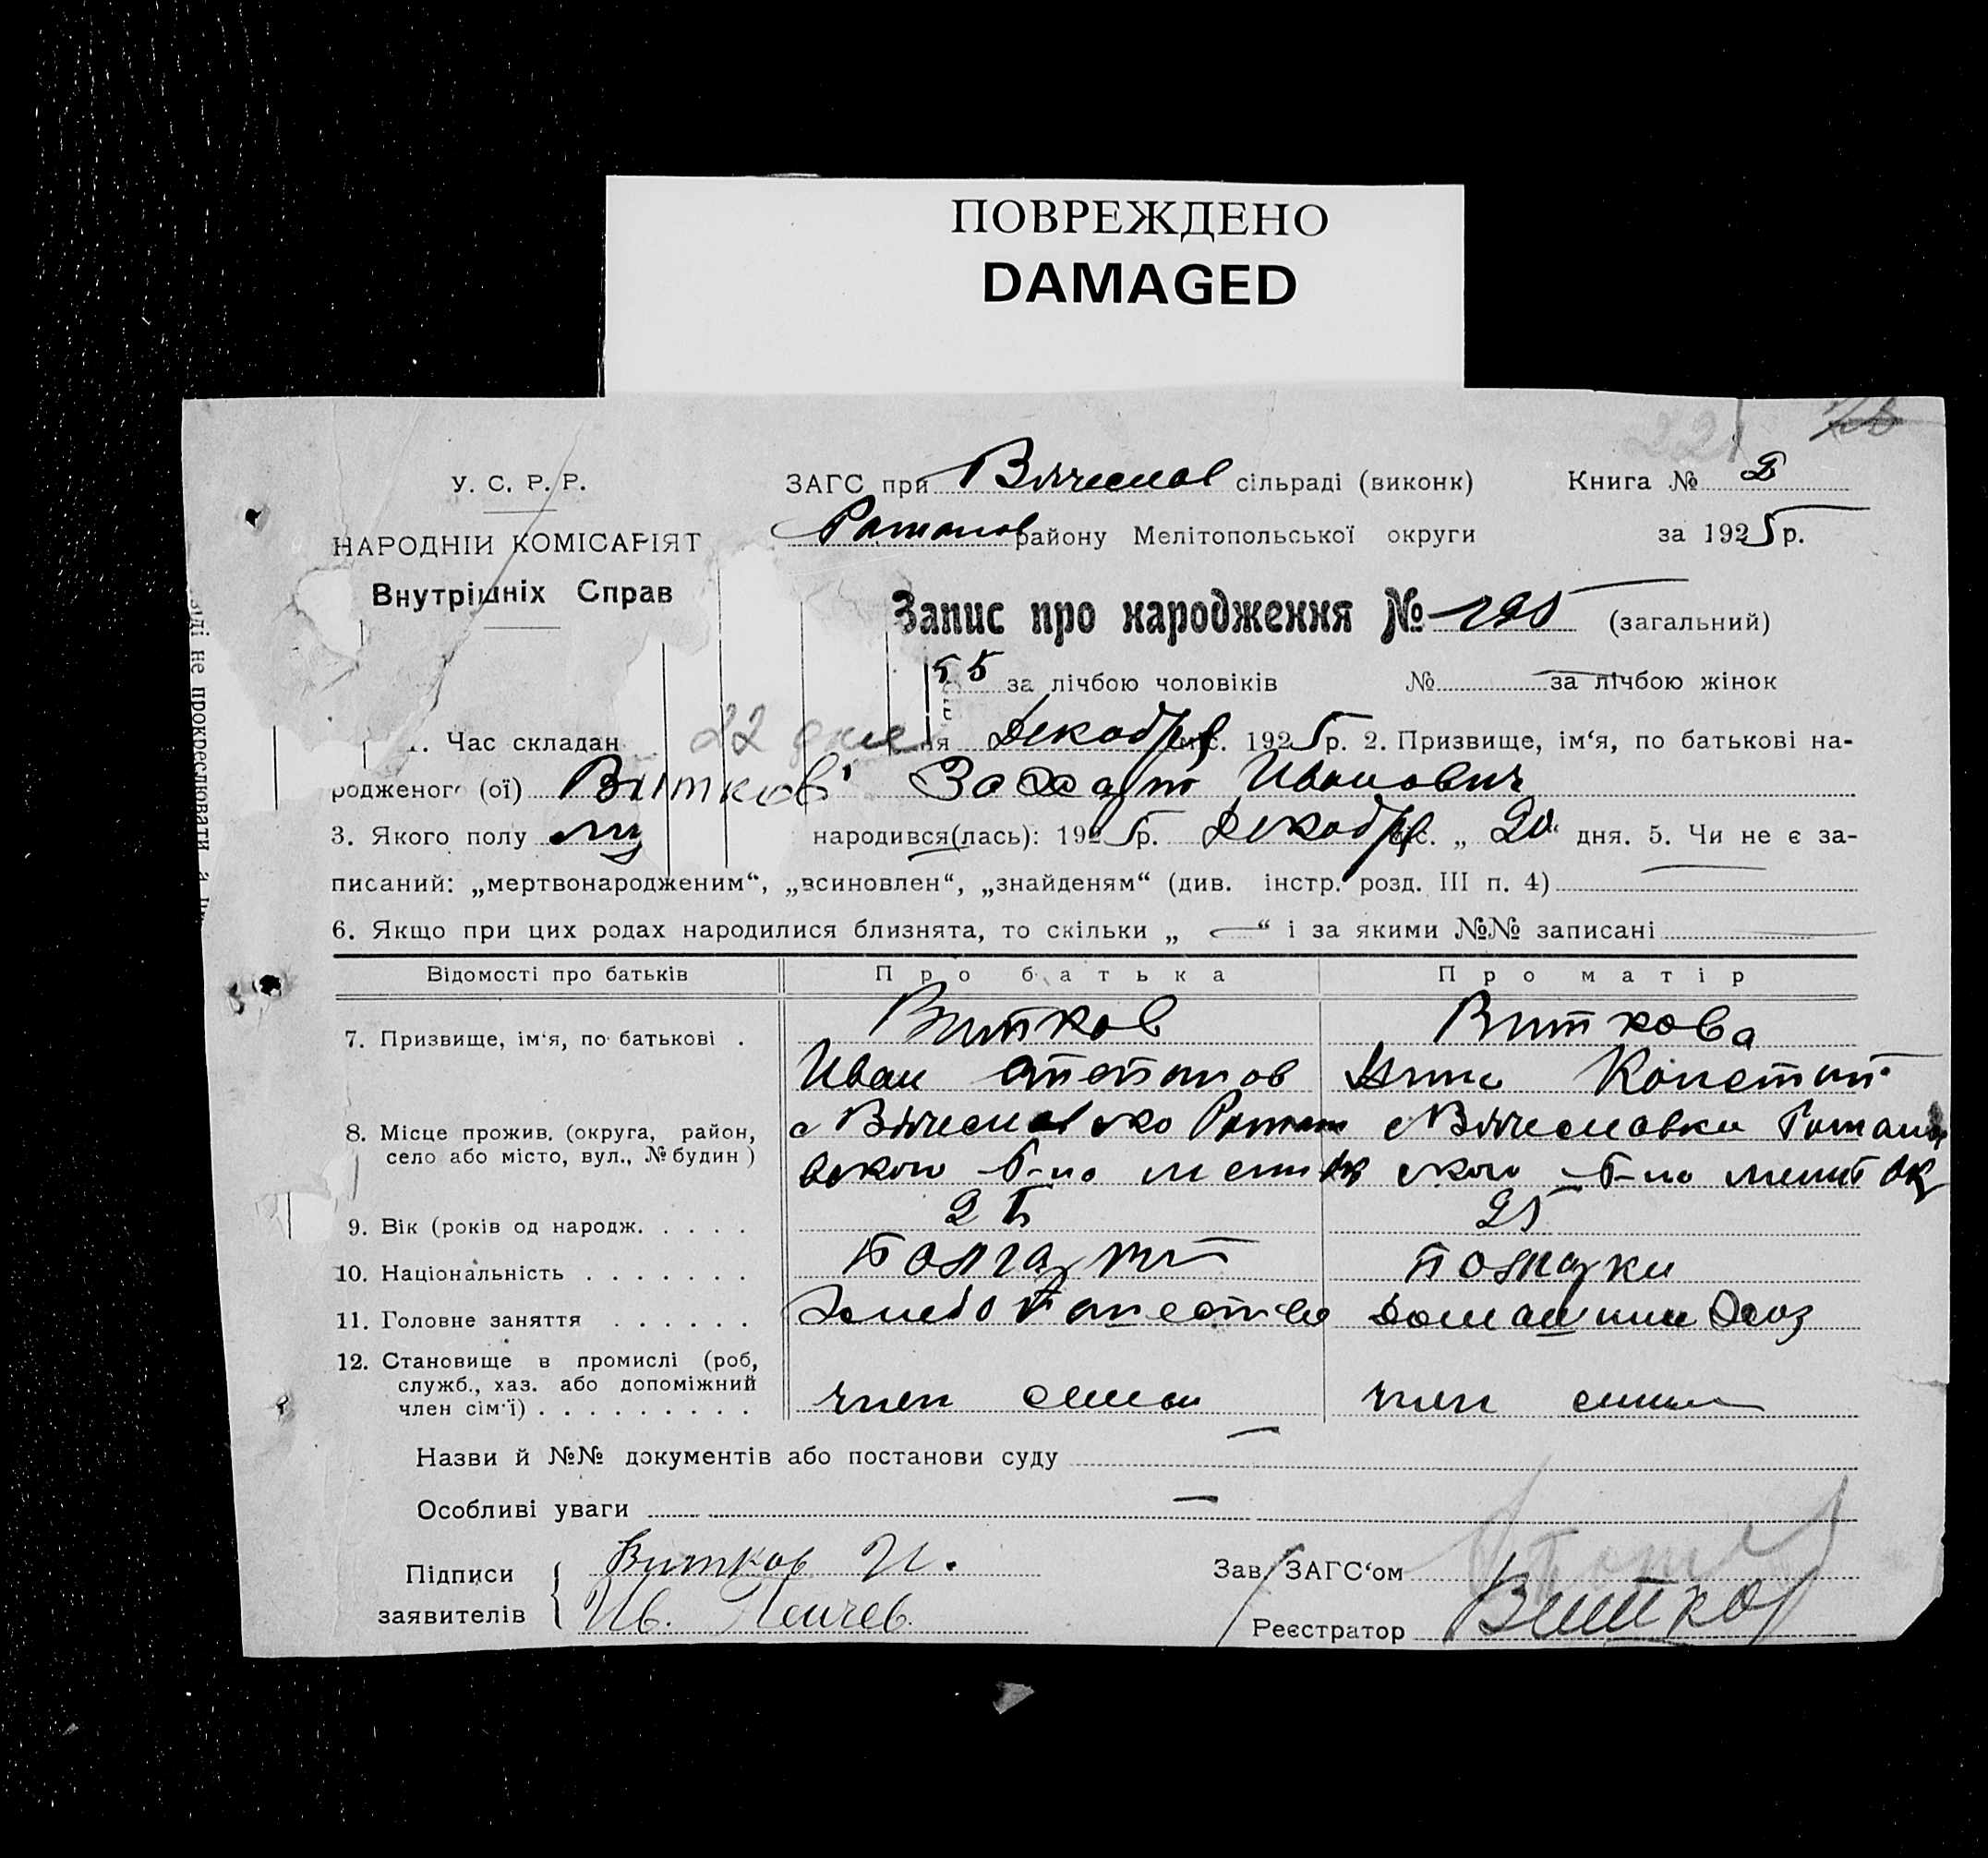 ПОВРЕЖДЕНО
DAMAGED
221
У. С. Р. Р.
НАРОДНІЙ КОМІСАРІЯТ
Внутрішніх Справ
ЗАГС при Вячеслов сільраді (виконк) Книга №
Ротанов району Мелітопольської округи за 1925 р.
Запис про народження № 195 (загальний)
за лічбою чоловіків № за лічбою жінок
1. Час складан 22 дня Декабря міс. 1925 р. 2. Призвище, ім‘я, по батькові на-
родженого (ої) Витков Захар Иванович
3. Якого полу му народився(лась): 1925 р. Декабря міс. „ 20 “ дня. 5. Чи не є за-
писаний: „мертвонародженим“, „всиновлен“, „знайденям“ (див. інстр. розд. III п. 4)
6. Якщо при цих родах народилися близнята, то скільки „ — “ і за якими №№ записані
Відомості про батьків Про батька Про матір
7. Призвище, ім‘я, по батькові . Витков Виткова
Иван Степанов Констант
8. Місце прожив. (округа, район, с Вячеславско Ротан с Вячесловки Ротанов
село або місто, вул., № будин) вского Р-на Мелит ок ского Р-на Мелит ок
9. Вік (років од народж. . . . . . 25 25
10. Національність . . . . . . . Болгарин Болгарка
11. Головне заняття . . . . . . Хлебопашество Домашнии Хоз
12. Становище в промислі (роб,
служб., хаз. або допоміжний
член сім‘ї) . . . . . . . . . член семьи член семьи
Назви й №№ документів або постанови суду —
Особливі уваги —
Підписи Витков И.
заявителів Ив. Пейчев
Зав. ЗАГС‘ом
Реєстратор Витков